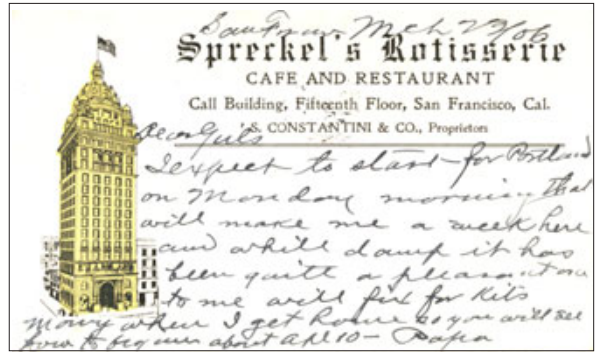 San Fran Mch 29/06
Spreckel's Rotisserie
CAFE AND RESTAURANT
Call Building, Fifteenth Floor, San Francisco, Cal.
S. CONSTANTINI & CO., Proprietors
Dear Girls
I expect to start for Portland
on Monday morning that
will make me a week here
and while damp it has
been quite a pleasant one
to me will fix for Kits
money when I get home so you will see
how to begin about Apl 10 - Papa